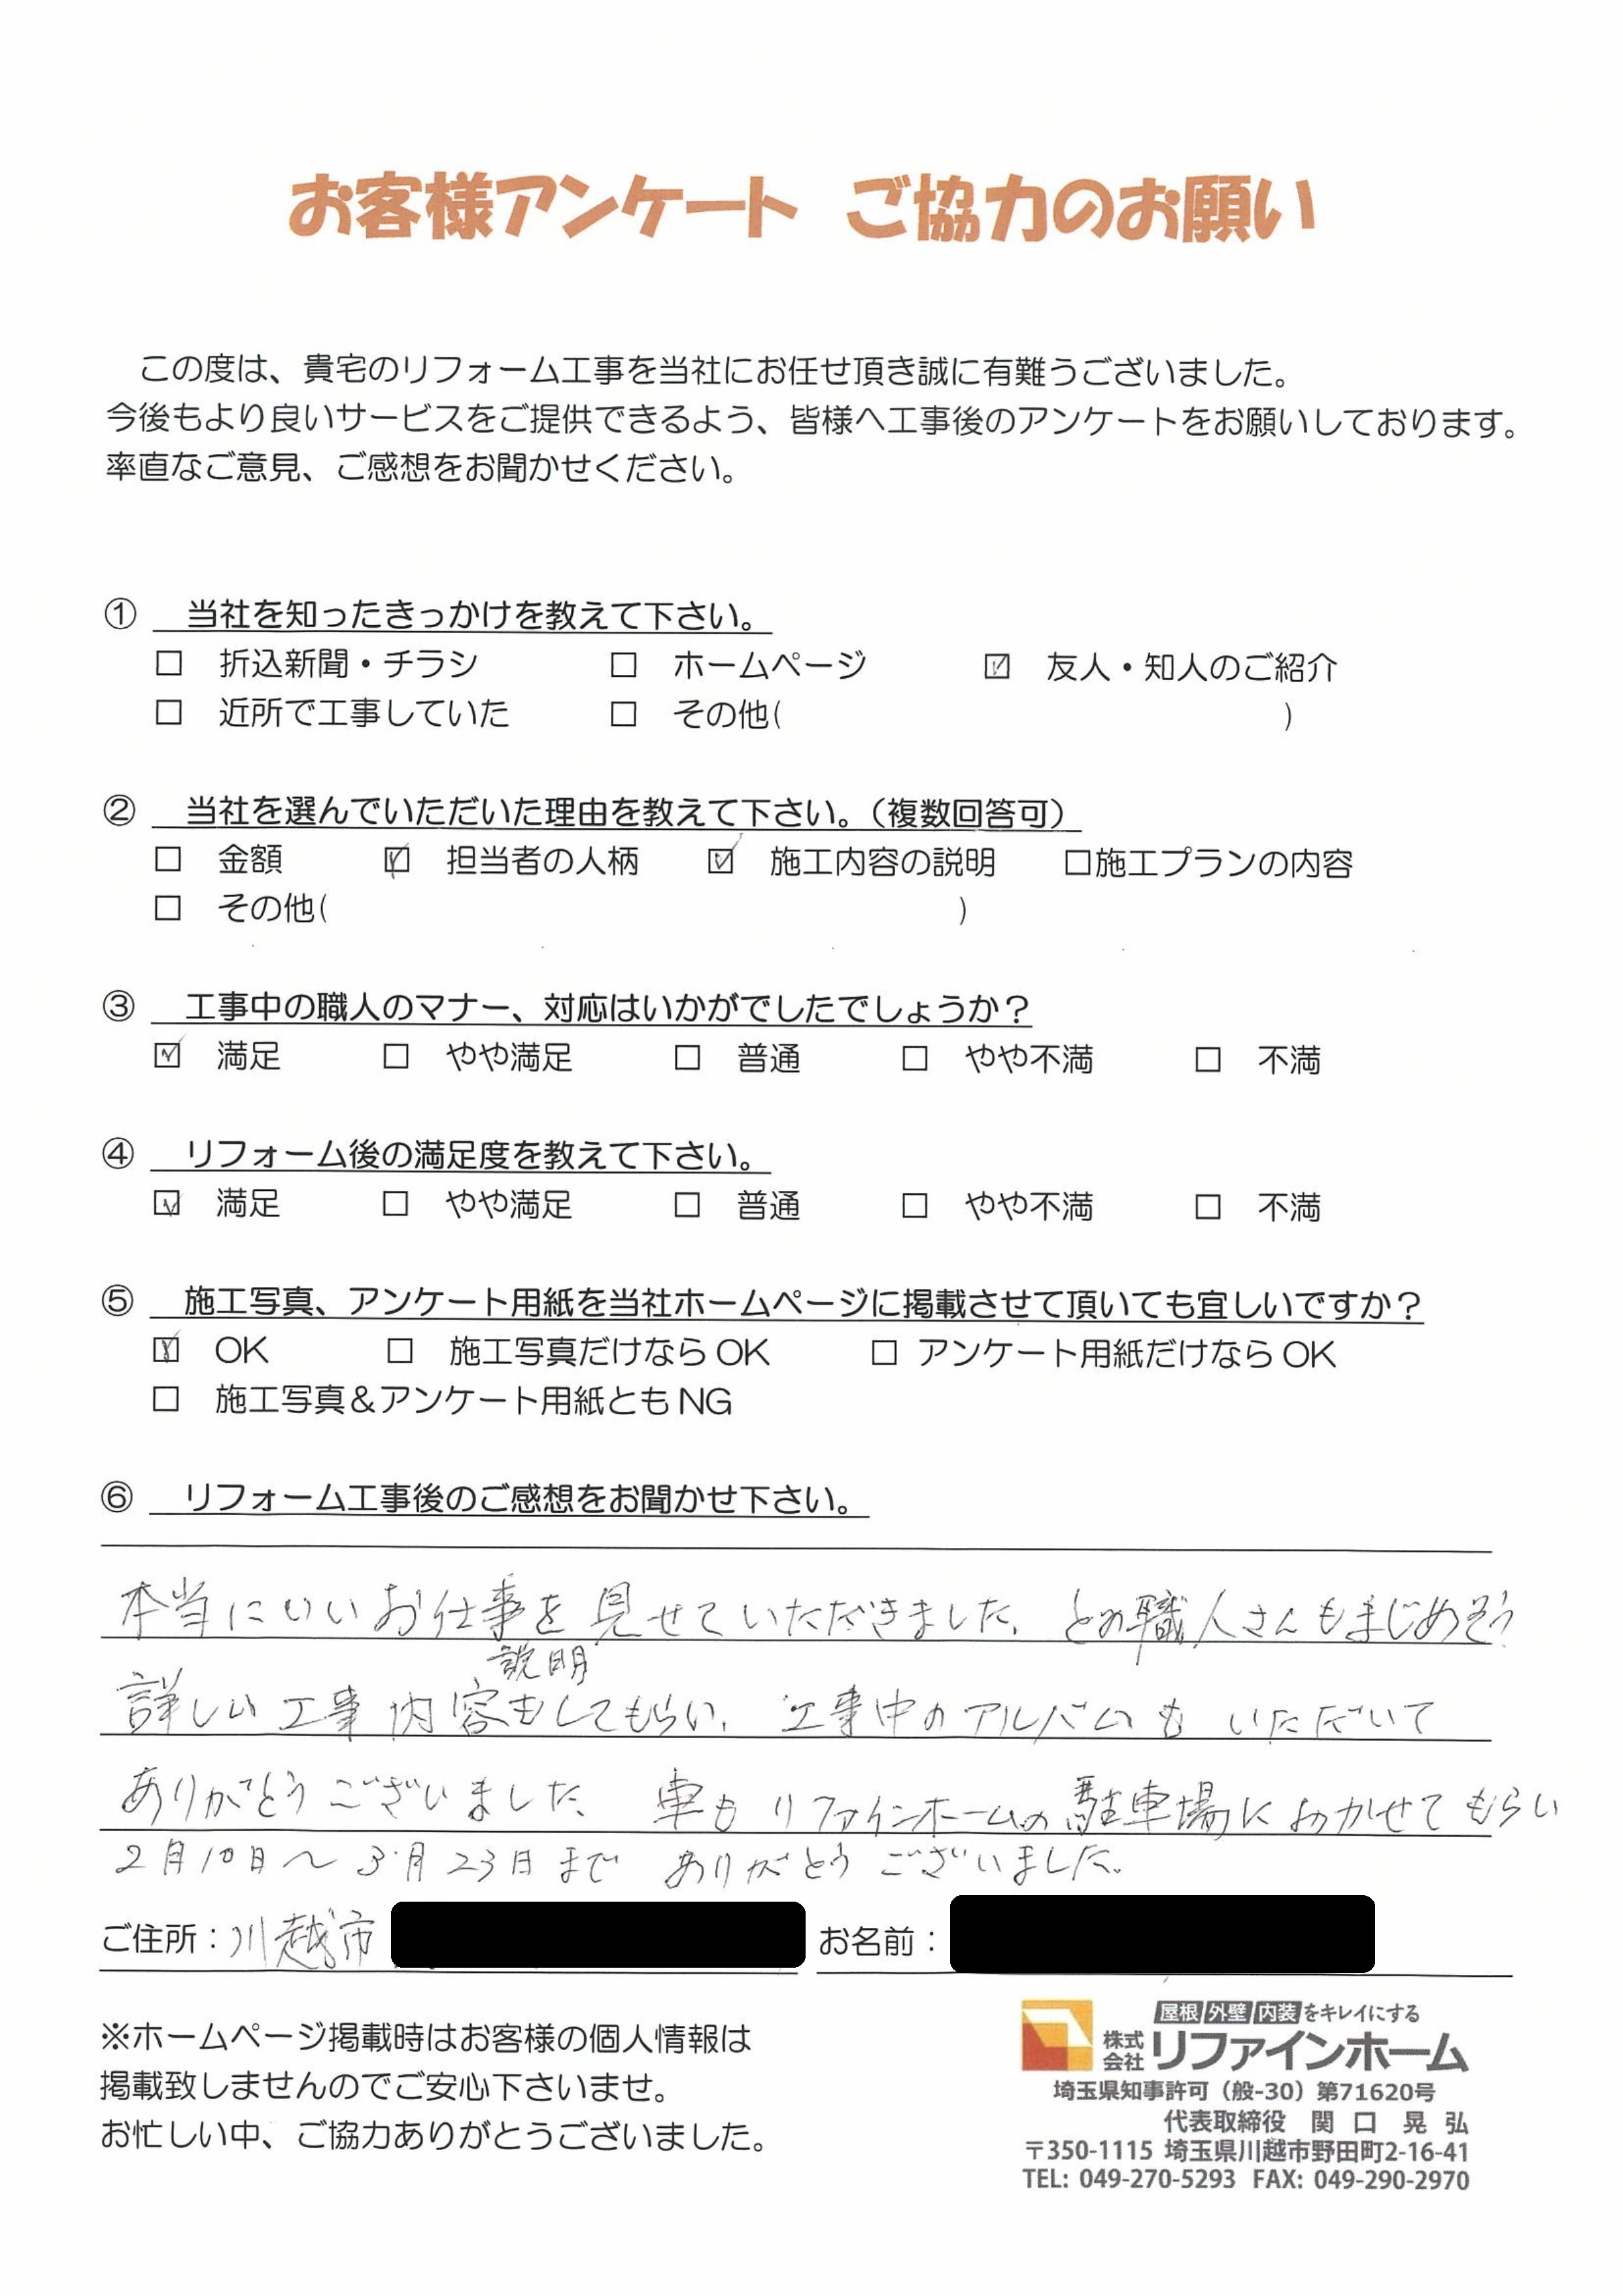 お客様アンケート ご協力のお願い
この度は、貴宅のリフォーム工事を当社にお任せ頂き誠に有難うございました。
今後もより良いサービスをご提供できるよう、皆様へ工事後のアンケートをお願いしております。
率直なご意見、ご感想をお聞かせください。
① 当社を知ったきっかけを教えて下さい。
□ 折込新聞・チラシ □ ホームページ ☑ 友人・知人のご紹介
□ 近所で工事していた □ その他( )
② 当社を選んでいただいた理由を教えて下さい。（複数回答可）
□ 金額 ☑ 担当者の人柄 ☑ 施工内容の説明 □施工プランの内容
□ その他( )
③ 工事中の職人のマナー、対応はいかがでしたでしょうか？
☑ 満足 □ やや満足 □ 普通 □ やや不満 □ 不満
④ リフォーム後の満足度を教えて下さい。
☑ 満足 □ やや満足 □ 普通 □ やや不満 □ 不満
⑤ 施工写真、アンケート用紙を当社ホームページに掲載させて頂いても宜しいですか？
☑ OK □ 施工写真だけなら OK □ アンケート用紙だけなら OK
□ 施工写真＆アンケート用紙とも NG
⑥ リフォーム工事後のご感想をお聞かせ下さい。
本当にいいお仕事を見せていただきました。どの職人さんもまじめそう
説明
詳しい工事内容もしてもらい、工事中のアルバムも いただいて
ありがとうございました。 車も リファインホームの駐車場におかせてもらい
2月10日〜3月23日まで ありがとうございました。
ご住所：川越市 お名前：
※ホームページ掲載時はお客様の個人情報は
掲載致しませんのでご安心下さいませ。
お忙しい中、ご協力ありがとうございました。
屋根 外壁 内装 をキレイにする
株式会社 リファインホーム
埼玉県知事許可（般-30）第71620号
代表取締役 関口 晃弘
〒350-1115 埼玉県川越市野田町2-16-41
TEL: 049-270-5293 FAX: 049-290-2970